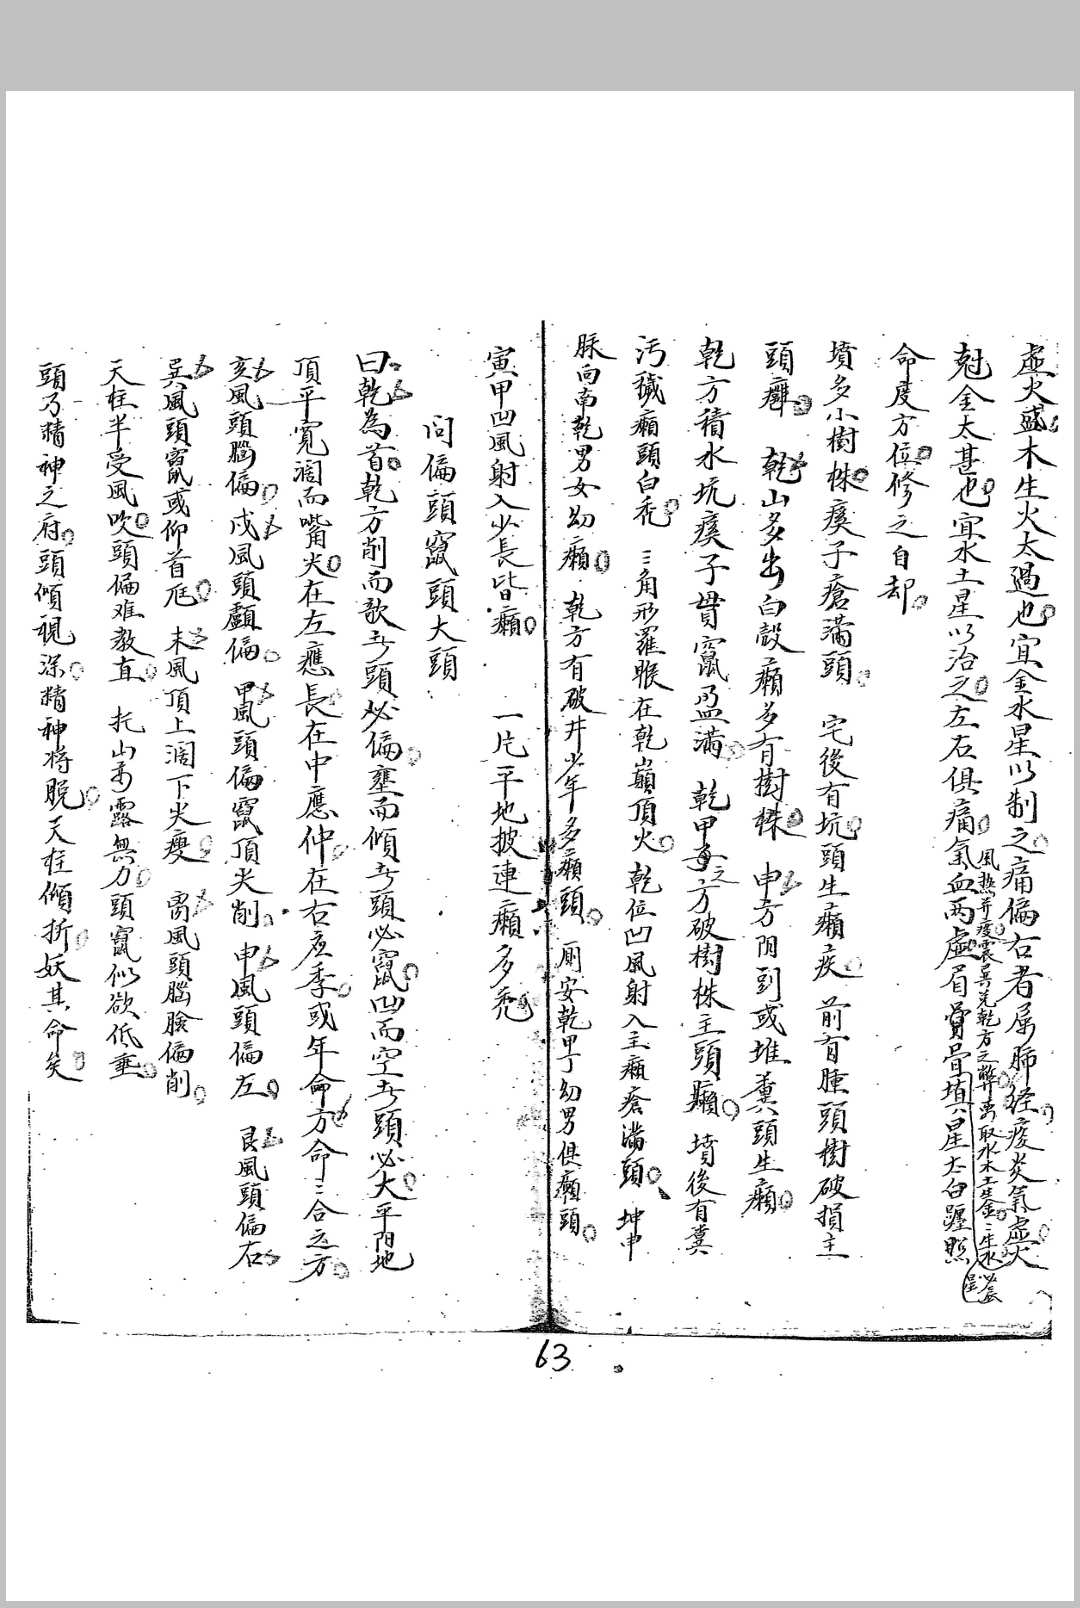 虛火盛木生火太過也宜金水星以制之痛偏右者屬肺经痰炎氣虛火
尅金太甚也宜水土星以治之左右俱痛氣血兩虛眉賞骨填星太白躔照
風热并痰震巽兑乾方之弊密取水木土生金金生水必辰星
命度方位修之自却
墳多小樹株瘼子瘡滿頭 宅後有坑頭生癩疾 前有腫頭樹破損主
頭癬 乾山多出白殼癩多有樹株 申方阴到或堆糞頭生癩
乾方積水坑瘼子胃竄盈滿 乾甲之方破樹株主頭癩 墳後有糞
汚穢癩頭白禿 三角形羅睺在乾巔頂火 乾位凹風射入主癩瘡滿頭 坤申
脉向南乾男女幼癩 乾方有破井少年多癩頭 厠安乾甲丁幼男俱癩頭
寅甲凹風射入少長皆癩 一片平地披連癩多禿
问偏頭竄頭大頭
曰乾為首乾方削而欹者頭必偏壅而傾者頭必竄凹而空者頭必大平阳地
頂平寬濶而嘴尖在左應長在中應仲在右应季或年命方命三合之方
亥風頭腦偏 戌風頭顱偏 甲風頭偏竄頂尖削 申風頭偏左 艮風頭偏右
巽風頭竄或仰首尫 未風頂上濶下尖瘦 离風頭腦臉偏削
天柱半受風吹頭偏难教直 托山宗露無力頭竄似欲低垂
頭乃精神之府頭傾視深精神将脱天柱傾折妖其命矣
63